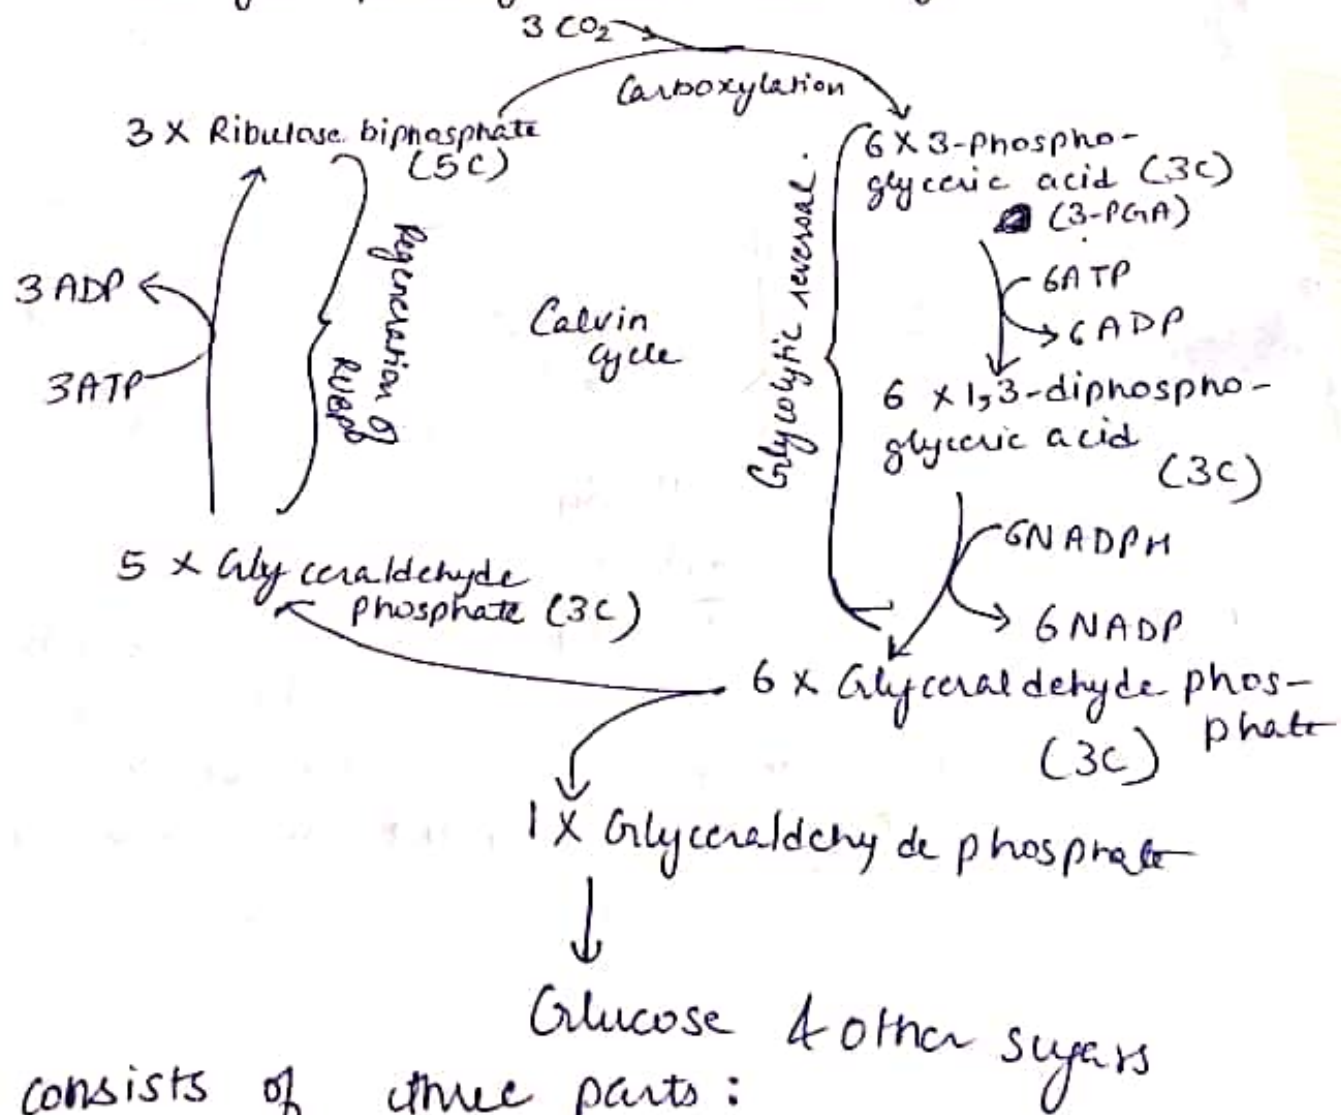 3 CO2
Carboxylation
3 X Ribulose biphosphate
(5C)
6 X 3-phospho-
glyceric acid (3C)
(3-PGA)
6ATP
6ADP
6 x 1,3-diphospho-
glyceric acid
(3C)
6NADPH
6NADP
6 x Glyceraldehyde phos-
phate
(3C)
Glycolytic reversal.
Calvin
cycle
Regeneration of
RuBP
3 ADP
3ATP
5 x Glyceraldehyde
phosphate (3C)
1 X Glyceraldehyde phosphate
Glucose & other sugars
consists of three parts: